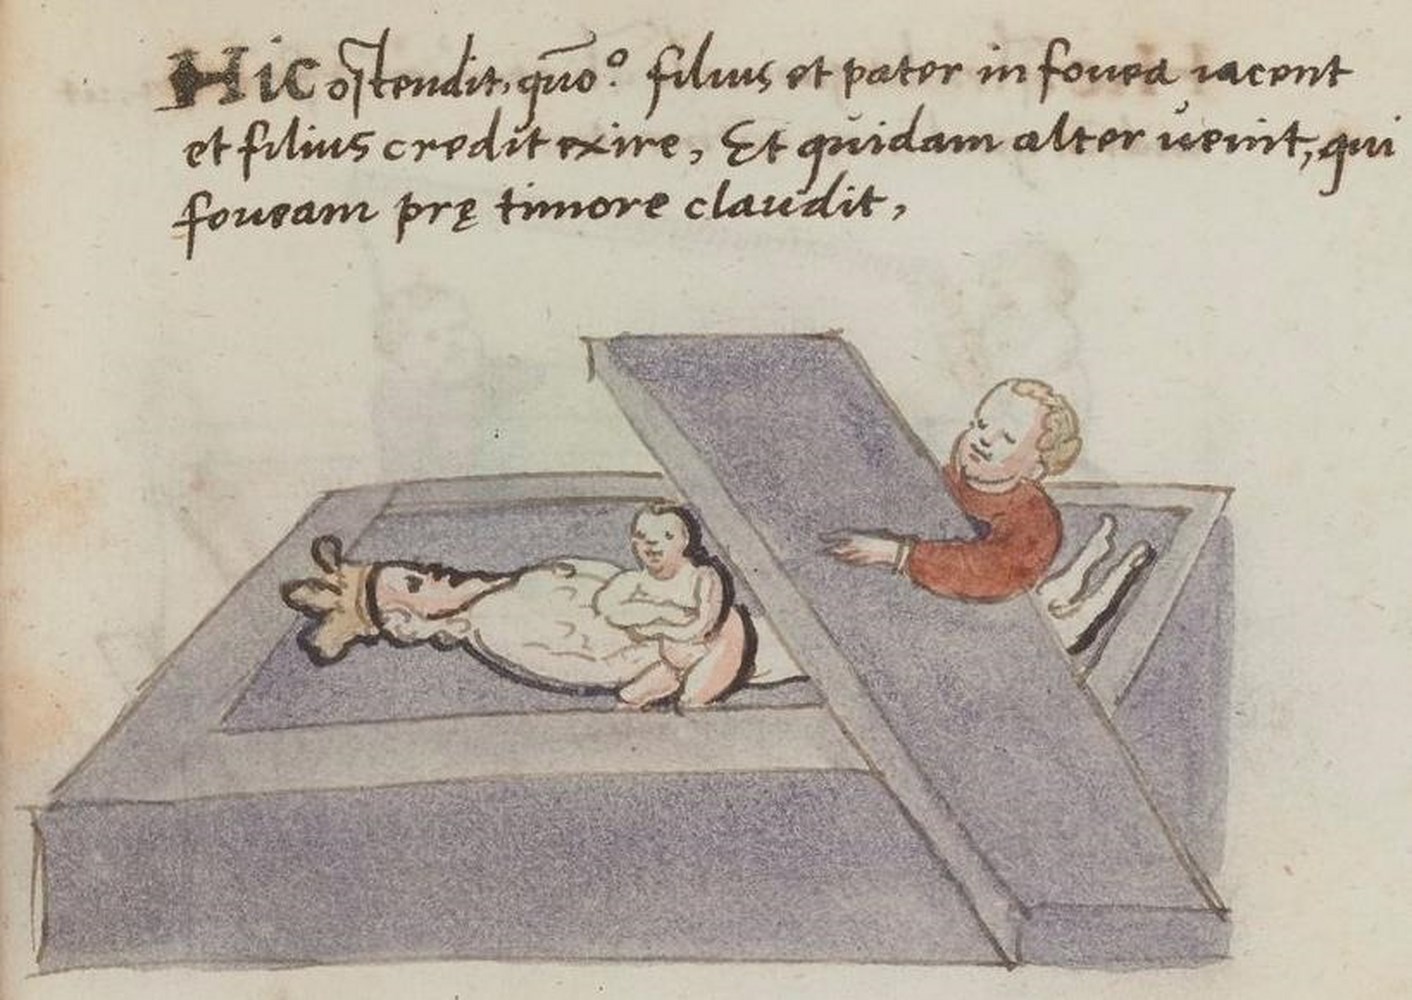 Hic ostendit, quō° filius et pater in fovea iacent
et filius credit exire, Et quidam alter venit, qui
foveam prę timore claudit,